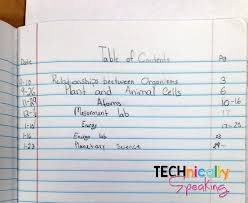 Table of Contents
Date Pg
9-10 Relationships beetween Organisms 3
9-26 Plant and Animal Cells 6
11-29 Atoms 10-16
12- Mesurment lab
1-10 Energy 17-20
1-16 Energy lab 23
1-23 Planetary Science 29-
TECHnically
Speaking